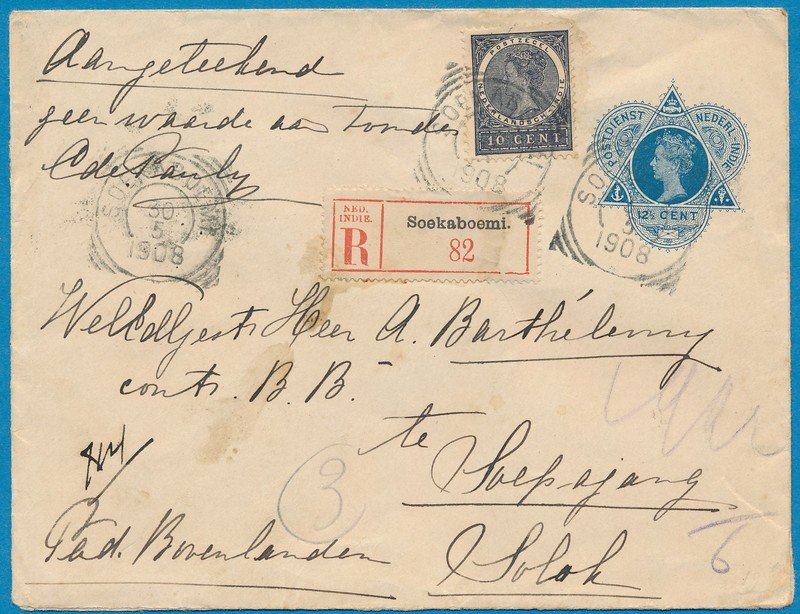 Aangeteekend
geen waarde aan
C de Pauly
POSTZEGEL
NEDERLANDSCH-INDIE
10 CENT
POSTDIENST NEDERL. INDIE
12½ CENT
SOEKABOEMI
30
5
1908
1908
1908
NED.
INDIE.
R
Soekaboemi.
82
WelEdlGest. Heer A. Barthélemy
contr. B. B.
te
Soepajang
Pad. Bovenlanden
Solok
3